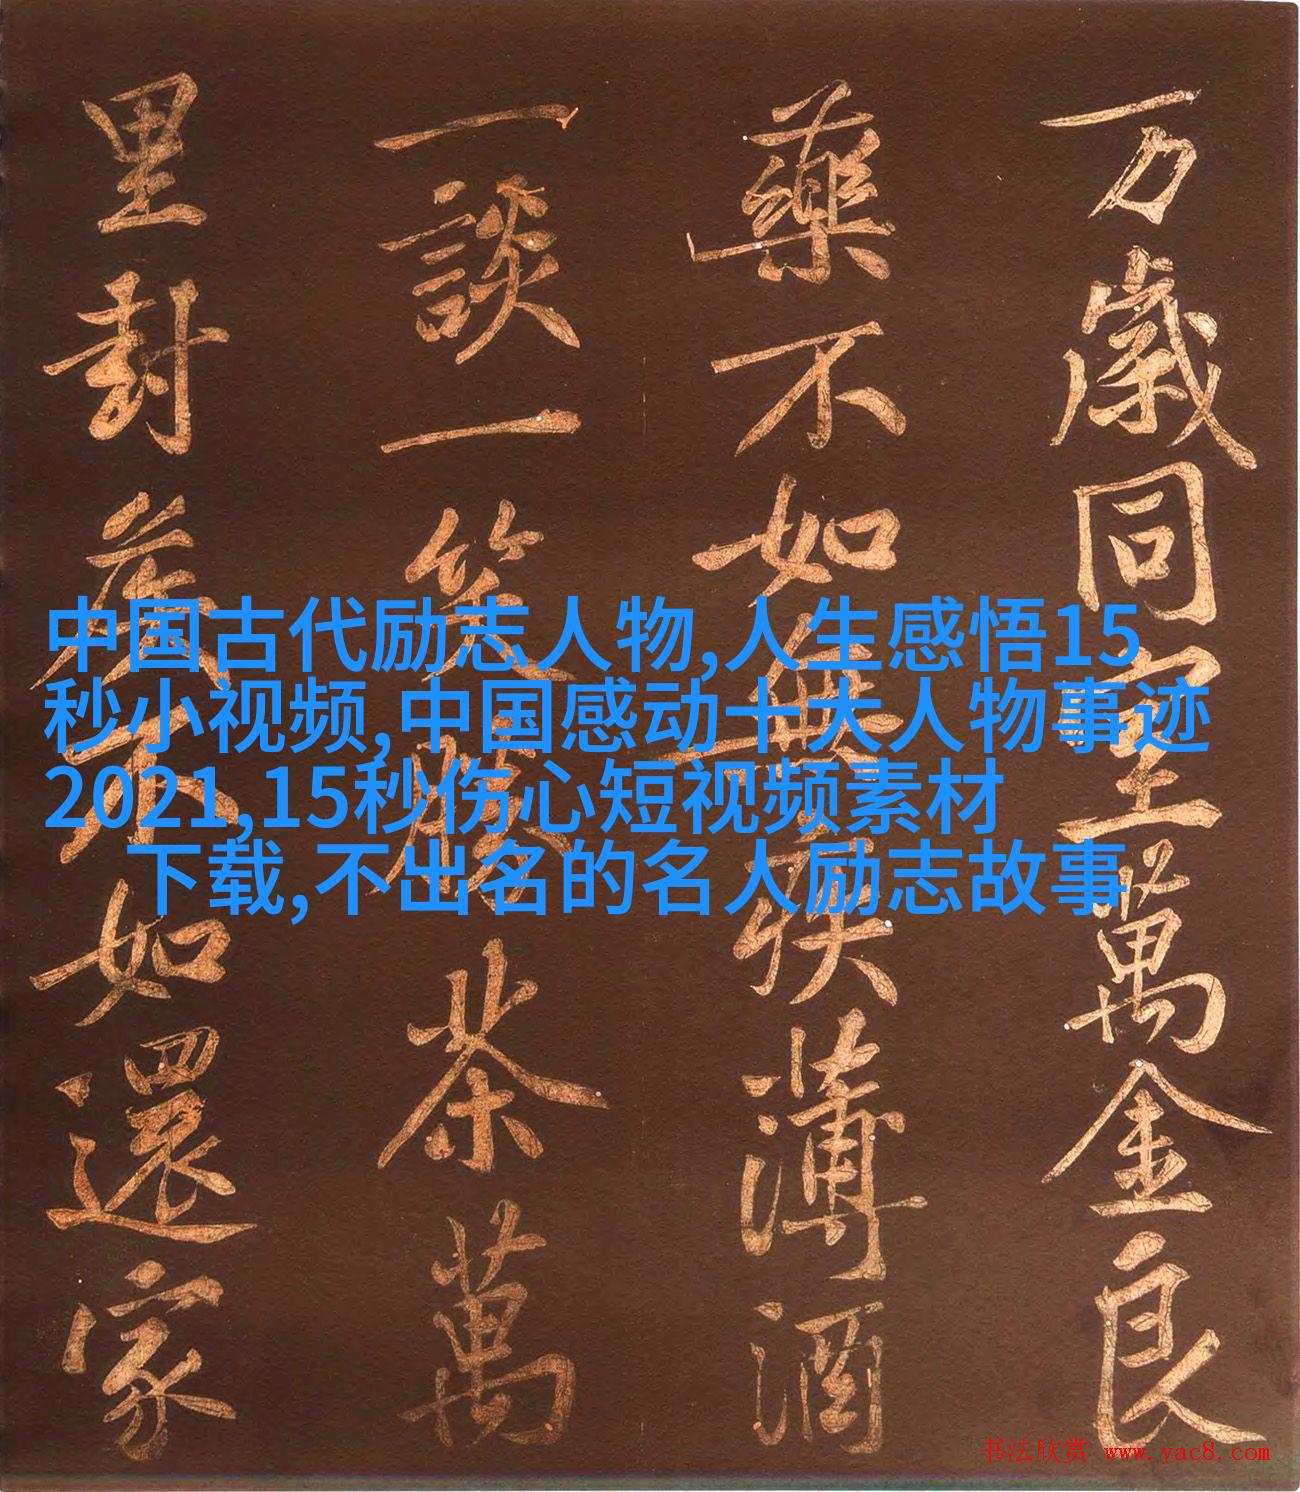 万歲同室萬金良
藥不如無疾薄酒
一談一笑勝茶萬
里封侯不如還家
中国古代励志人物,人生感悟15
秒小视频,中国感动十大人物事迹
2021,15秒伤心短视频素材
下载,不出名的名人励志故事
书法欣赏 www.yac8.com